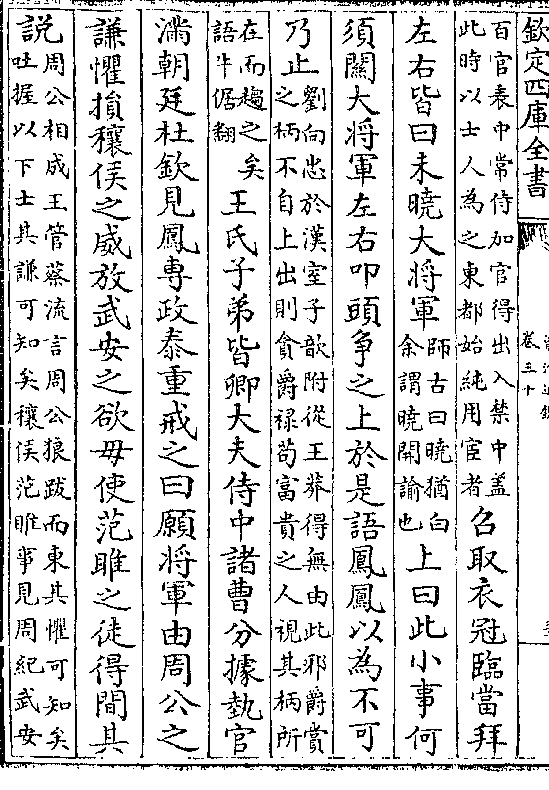 欽定四庫全書
卷三十
百官表中常侍加官得出入禁中盖
此時以士人為之東都始純用宦者
召取衣冠臨當拜
左右皆曰未曉大將軍
師古曰曉猶白
余謂曉開諭也
上曰此小事何
須關大將軍左右叩頭爭之上於是語鳳鳳以為不可
乃止
劉向忠於漢室子歆附從王莽得無由此邪爵賞
之柄不自上出則貪爵禄苟富貴之人視其柄所
在而趨之矣
語牛倨翻
王氏子弟皆卿大夫侍中諸曹分據埶官
滿朝廷杜欽見鳳專政泰重戒之曰願將軍由周公之
謙懼損穰侯之威放武安之欲毋使范雎之徒得間其
說
周公相成王管蔡流言周公狼跋而東其懼可知矣
吐握以下士其謙可知矣穰侯范雎事見周紀武安